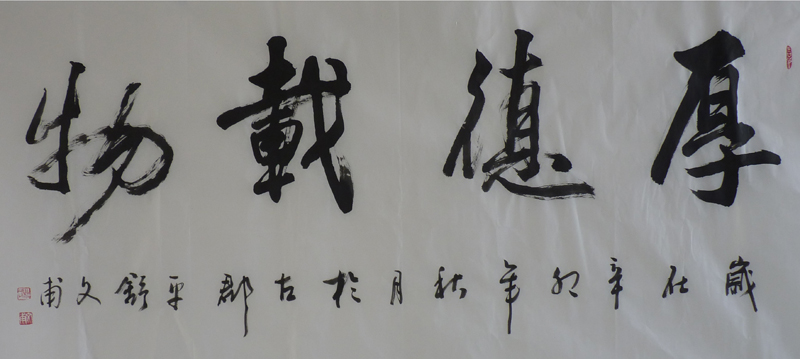 厚德載物
歲在辛卯年秋月於古郡平舒文甫